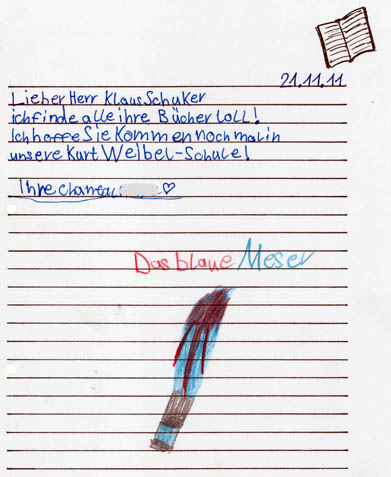 21.11.11
Lieber Herr Klaus Schuker
ich finde alle ihre Bücher toll!
Ich hoffe Sie Kommen noch mal in
unsere Kurt Weibel-Schule!
Ihre
Das blaue Meser